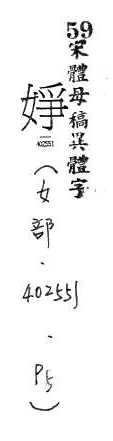 59
宋體母稿異體字
婙
402551
（女部．402551．P5）